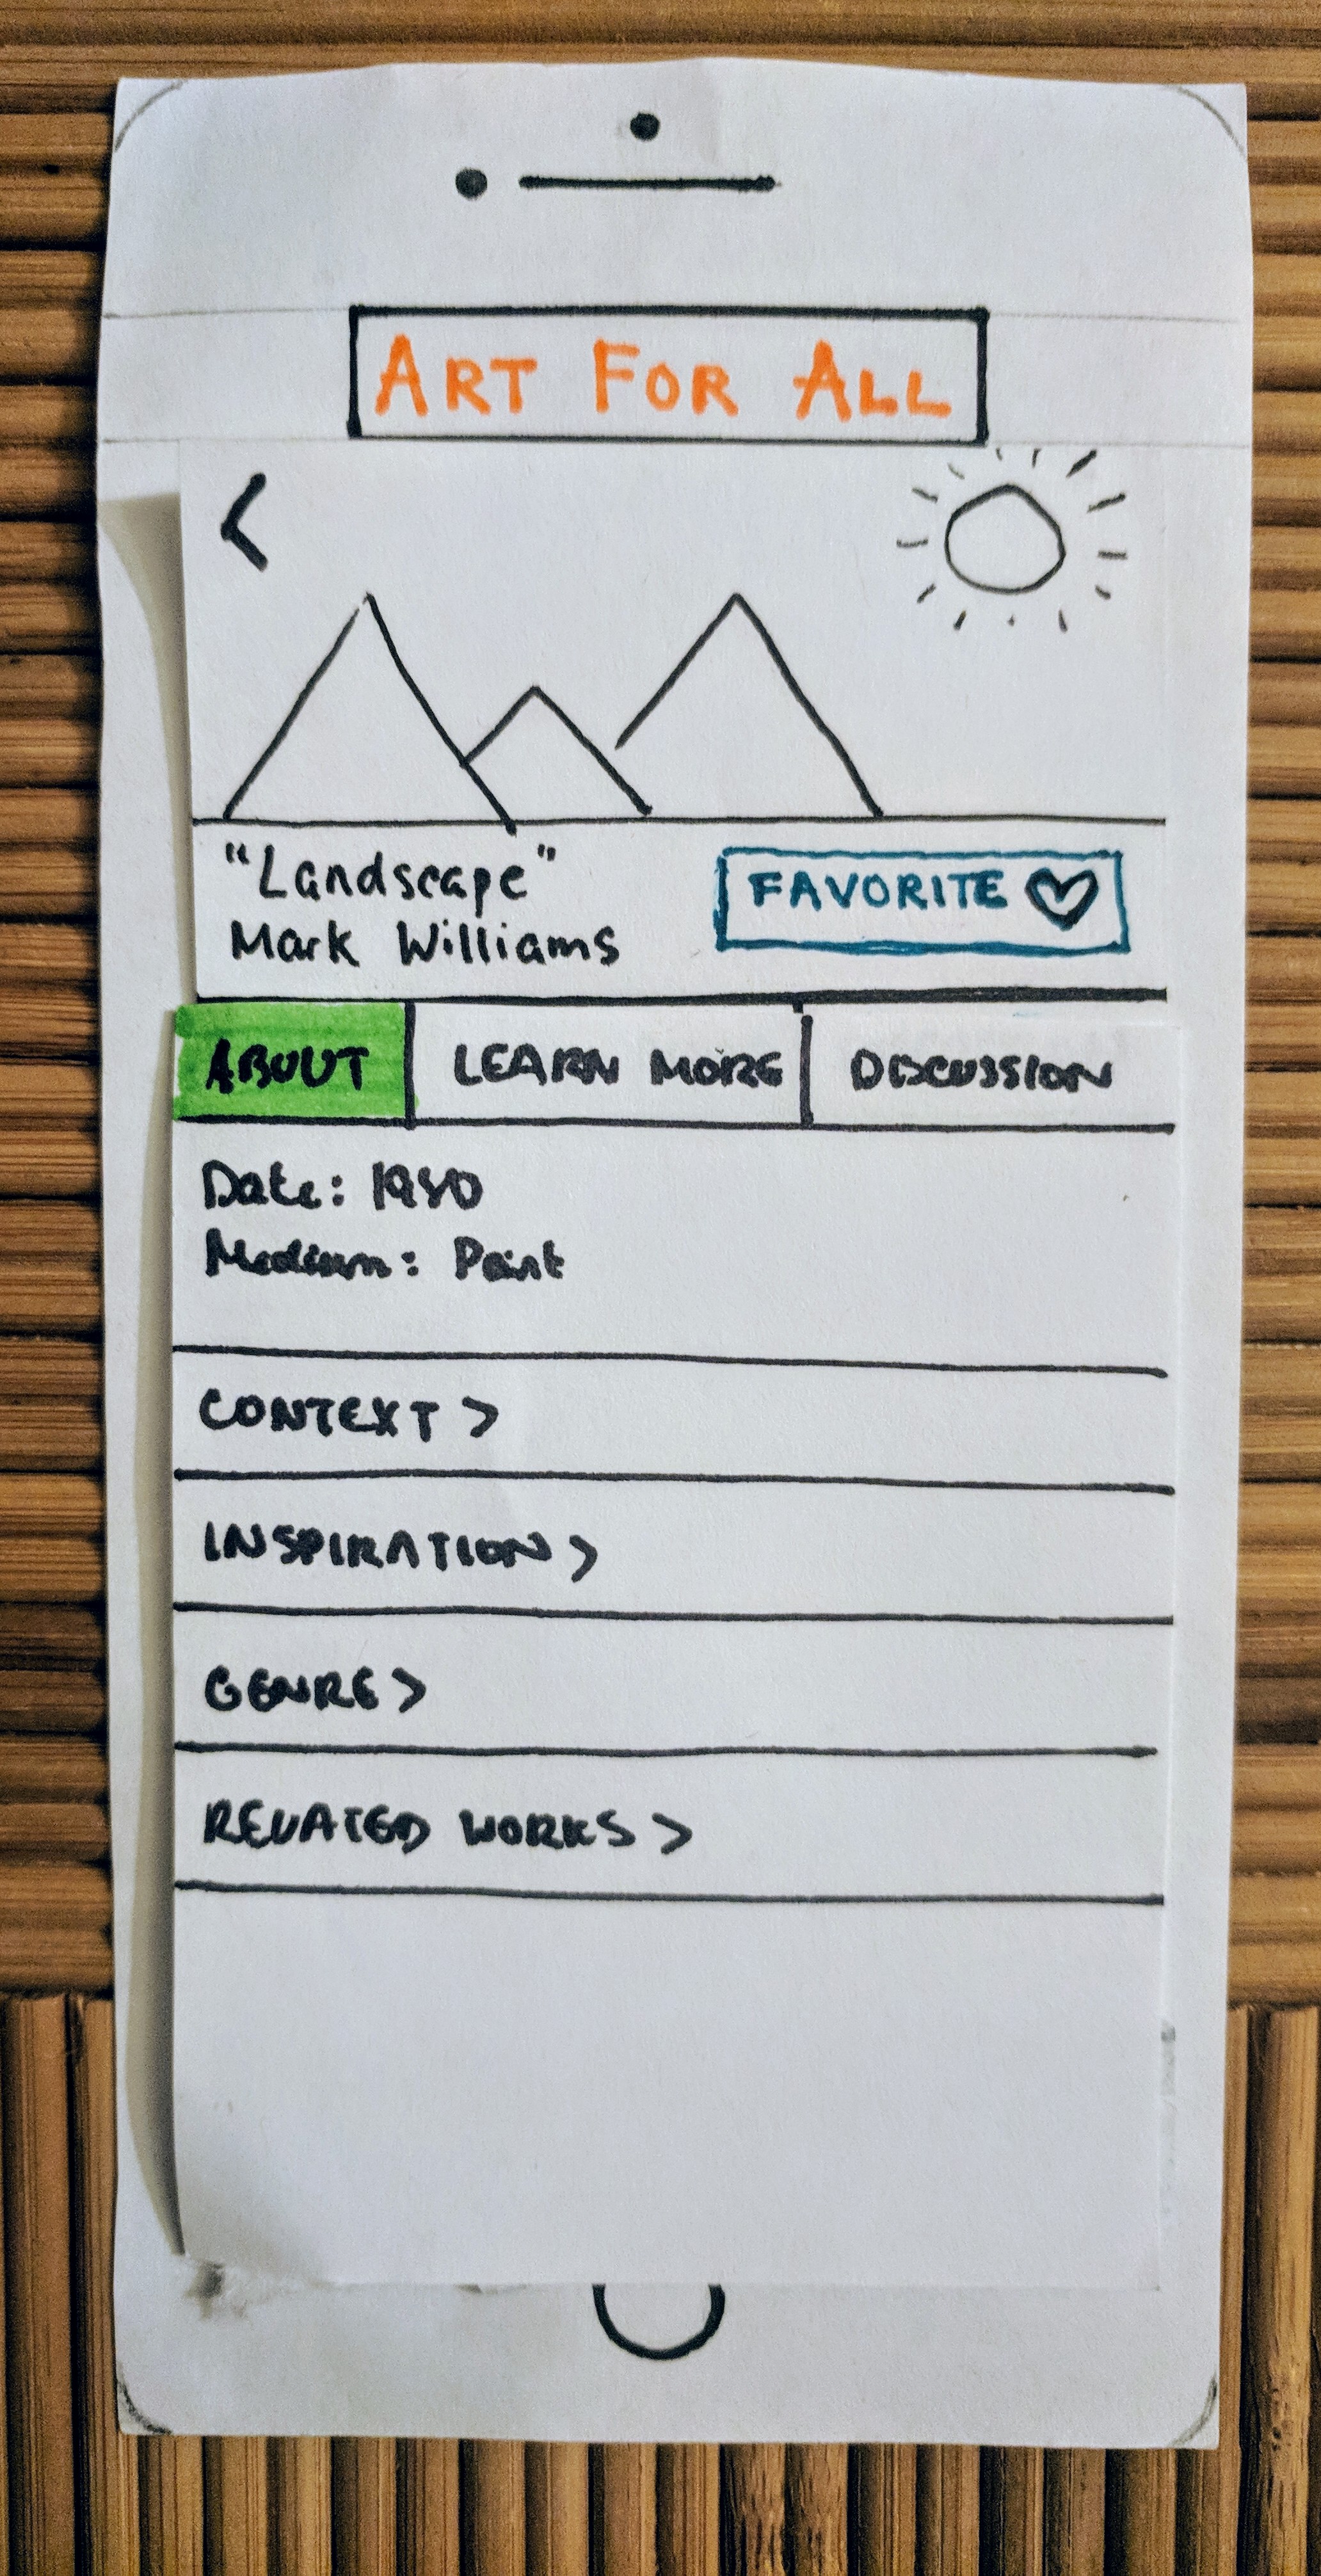 ART FOR ALL
<
"Landscape"
Mark Williams
FAVORITE
ABOUT
LEARN MORE
DISCUSSION
Date: 1980
Medium: Paint
CONTEXT >
INSPIRATION >
GENRE >
RELATED WORKS >